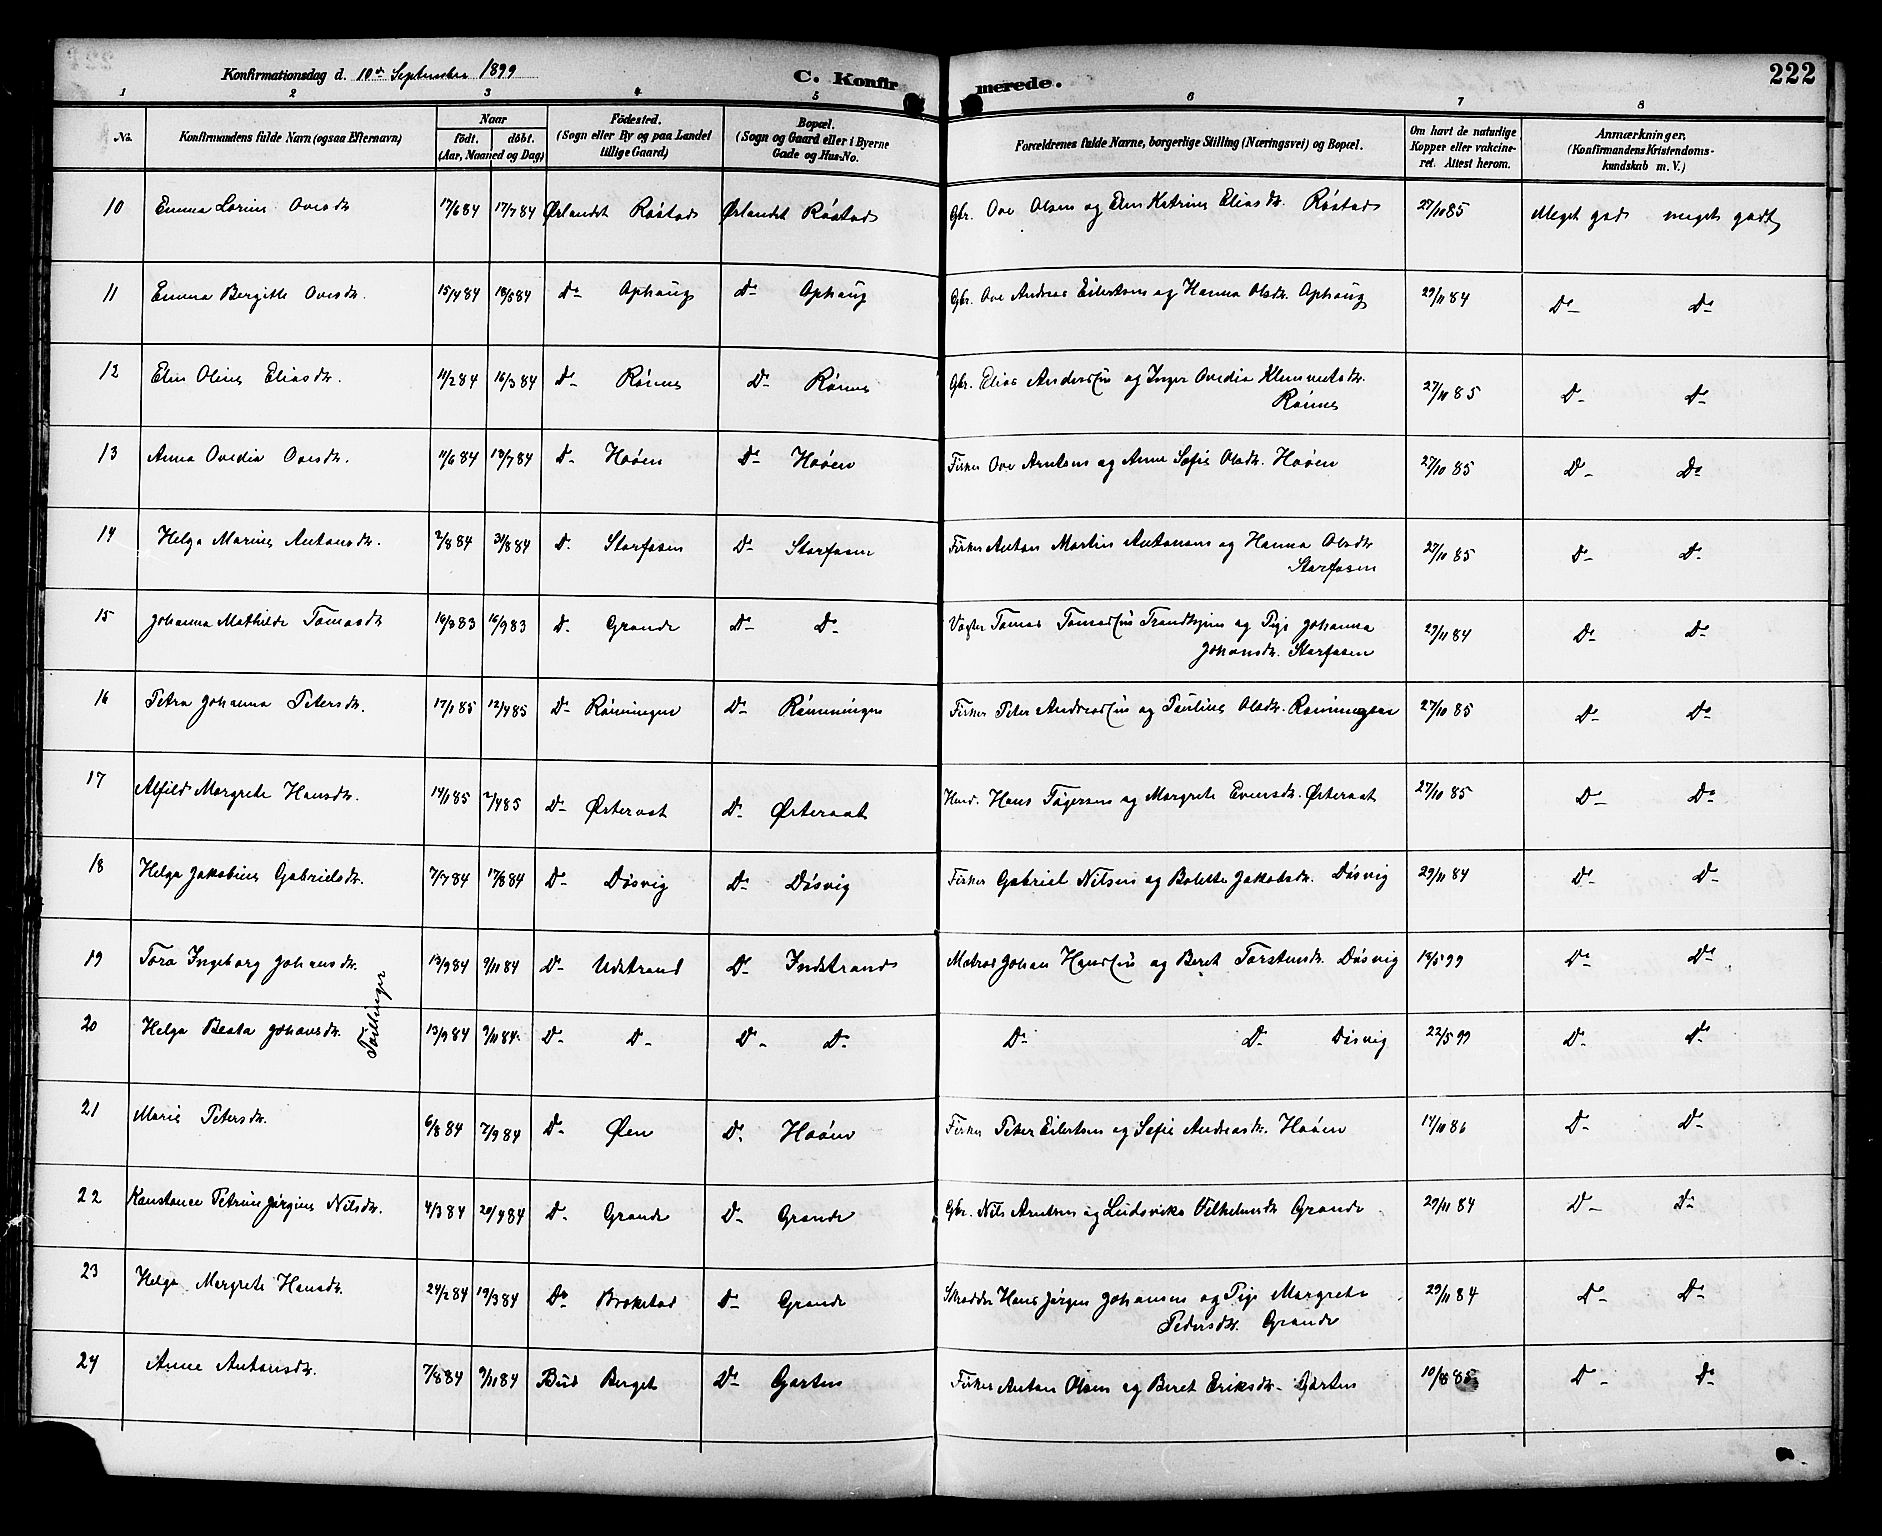 Konfirmationsdag d. 10de September 1899
C. Konfirmerede.
222
1 2 3 4 5 6 7 8
No. Konfirmandens fulde Navn (ogsaa Efternavn) Naar født. døbt. (Aar, Maaned og Dag) Fødested. (Sogn eller By og paa Landet tillige Gaard) Bopæl. (Sogn og Gaard eller i Byerne Gade og Hus-No. Forældrenes fulde Navne, borgerlige Stilling (Næringsvei) og Bopæl. Om havt de naturlige Kopper eller vakcineret. Attest herom. Anmærkninger, (Konfirmandens Kristendomskundskab m. V.)
10 Emma Lorine Ovesdr. 17/6 84 17/7 84 Ørlandet Røstad Ørlandet Røstad Gbr. Ove Olsen og Elen Katrine Eliasdr. Røstad 27/10 85 Meget god meget godt
11 Emma Bergitte Ovesdr. 15/4 84 18/5 84 Do Ophaug Do Ophaug Gbr. Ove Andreas Eilertsen og Hanna Olsdr. Ophaug 29/11 84 Do Do
12 Elen Oline Eliasdr. 11/2 84 16/3 84 Do Rønne Do Rønne Gbr. Elias Andersen og Inger Ovedia Klemmetsdr.
Rønne 27/11 85 Do Do
13 Anna Ovedia Ovesdr. 11/6 84 13/7 84 Do Hoøen Do Hoøen Fisker Ove Arntsen og Anne Sofie Olsdr. Hoøen 27/10 85 Do Do
14 Helga Marine Antonsdr. 2/8 84 31/8 84 Do Storfosen Do Storfosen Fisker Anton Martin Antonsen og Hanna Olsdr.
Storfosen 27/10 85 Do Do
15 Johanna Mathilde Tomasdr. 16/3 83 16/9 83 Do Grande Do Do Vogter Tomas Tomassen Trondhjem og Pige Johanna
Johansdr. Storfosen 29/11 84 Do Do
16 Petra Johanna Petersdr. 17/1 85 12/4 85 Do Rønningen Do Rønningen Fisker Peter Andreassen og Pauline Olsdr. Rønningen 27/10 85 Do Do
17 Alfild Margrete Hansdr. 14/1 85 2/4 85 Do Østeraat Do Østeraat Hmd. Hans Tøgersen og Margrete Evensdr. Østeraat 27/10 85 Do Do
18 Helga Jakobine Gabrielsdr. 7/7 84 17/8 84 Do Døsvig Do Døsvig Fisker Gabriel Nilsen og Bolette Jakobsdr. Døsvig 29/11 84 Do Do
19 Tora Ingeborg Johansdr. 13/9 84 9/11 84 Do Udstrand Do Indstrand Matros Johan Hansen og Beret Torstensdr. Døsvig 19/5 99 Do Do
Tvillinger
20 Helga Beata Johansdr. 13/9 84 9/11 84 Do Do Do Do Do Do Døsvig 22/5 99 Do Do
21 Marie Petersdr. 6/8 84 7/9 84 Do Øen Do Hoøen Fisker Peter Eilertsen og Sofie Andreasdr. Hoøen 14/11 86 Do Do
22 Konstance Petrine Jørgine Nilsdr. 4/3 84 20/4 84 Do Grande Do Grande Gbr. Nils Arntsen og Ludovika Vilhelmsdr. Grande 29/11 84 Do Do
23 Helga Margrete Hansdr. 24/2 84 19/3 84 Do Brekstad Do Grande Skrædder Hans Jørgen Johansen og Pige Margrete
Pedersdr. Grande 29/11 84 Do Do
24 Anne Antonsdr. 7/8 84 9/11 84 Bud Berget Do Garten Fisker Anton Olsen og Beret Eriksdr. Garten 10/8 85 Do Do